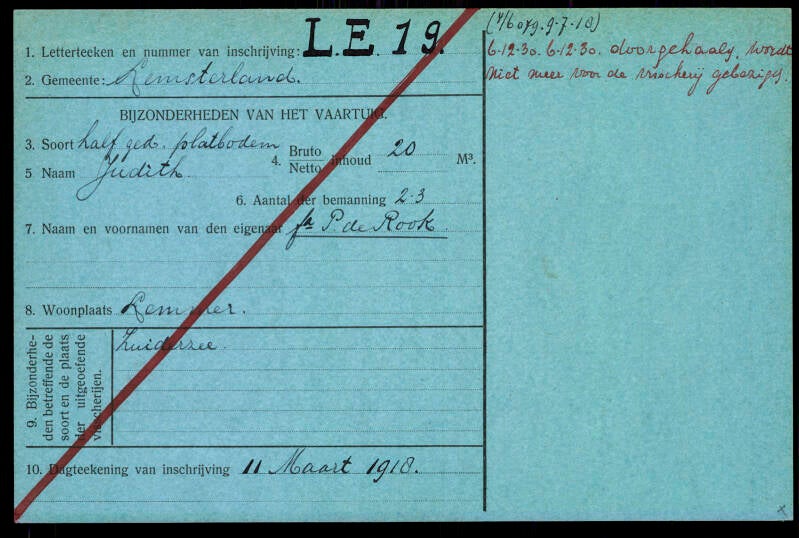 1. Letterteeken en nummer van inschrijving: L.E. 19.
2. Gemeente: Lemsterland.
BIJZONDERHEDEN VAN HET VAARTUIG.
3. Soort half ged. platbodem
4. Bruto
Netto inhoud 20 M³.
5 Naam Judith
6. Aantal der bemanning 2-3
7. Naam en voornamen van den eigenaar fa P. de Rook
8. Woonplaats Lemmer.
9. Bijzonderhe-
den betreffende de
soort en de plaats
der uitgeoefende
visscherijen.
Zuiderzee.
10. Dagteekening van inschrijving 11 Maart 1918.
9-7-18)
6-12-30. 6-12-30. doorgehaald, wordt
niet meer voor de visscherij gebezigd.